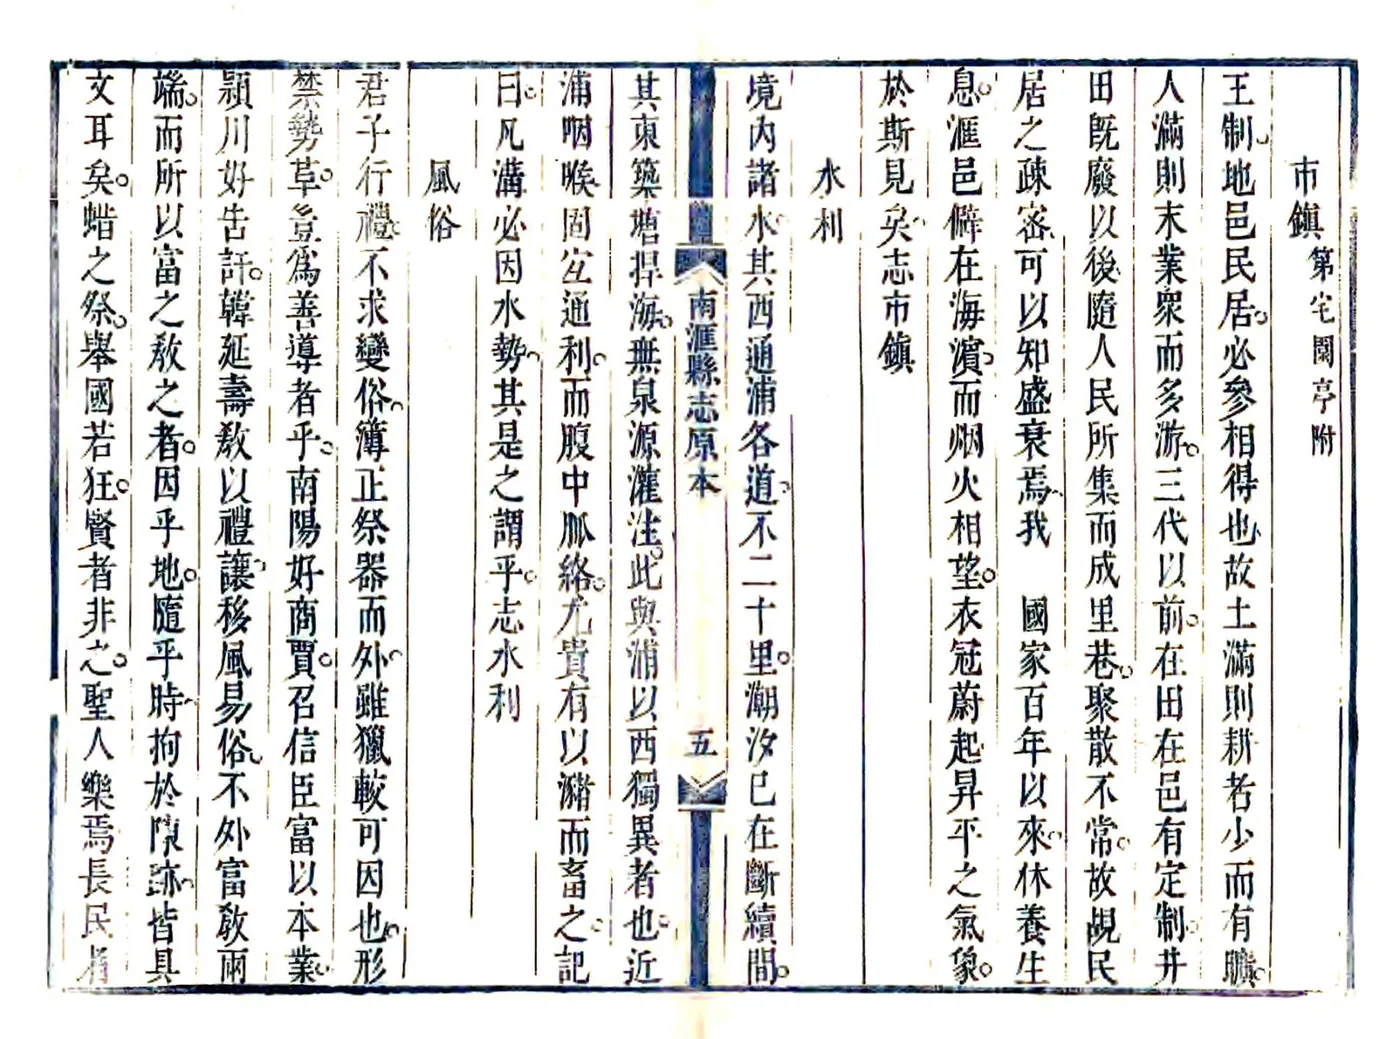 市鎮 第宅園亭附
王制地邑民居必參相得也故土滿則耕者少而有曠
人滿則末業衆而多游三代以前在田在邑有定制井
田旣廢以後隨人民所集而成里巷聚散不常故覘民
居之疎密可以知盛衰焉我 國家百年以來休養生
息滙邑僻在海濱而烟火相望衣冠蔚起昇平之氣象
於斯見矣志市鎮
水利
境內諸水其西通浦各道不二十里潮汐已在斷續間
南滙縣志原本
五
其東築塘捍海無泉源灌注此與浦以西獨異者也近
浦咽喉固宜通利而腹中脈絡尤貴有以瀦而畜之記
曰凡溝必因水勢其是之謂乎志水利
風俗
君子行禮不求變俗簿正祭器而外雖獵較可因也形
禁勢草豈爲善導者乎南陽好商賈召信臣富以本業
潁川好告訐韓延壽敎以禮讓移風易俗不外富敎兩
端而所以富之敎之者因乎地隨乎時拘於陳跡皆具
文耳矣蜡之祭舉國若狂賢者非之聖人樂焉長民者